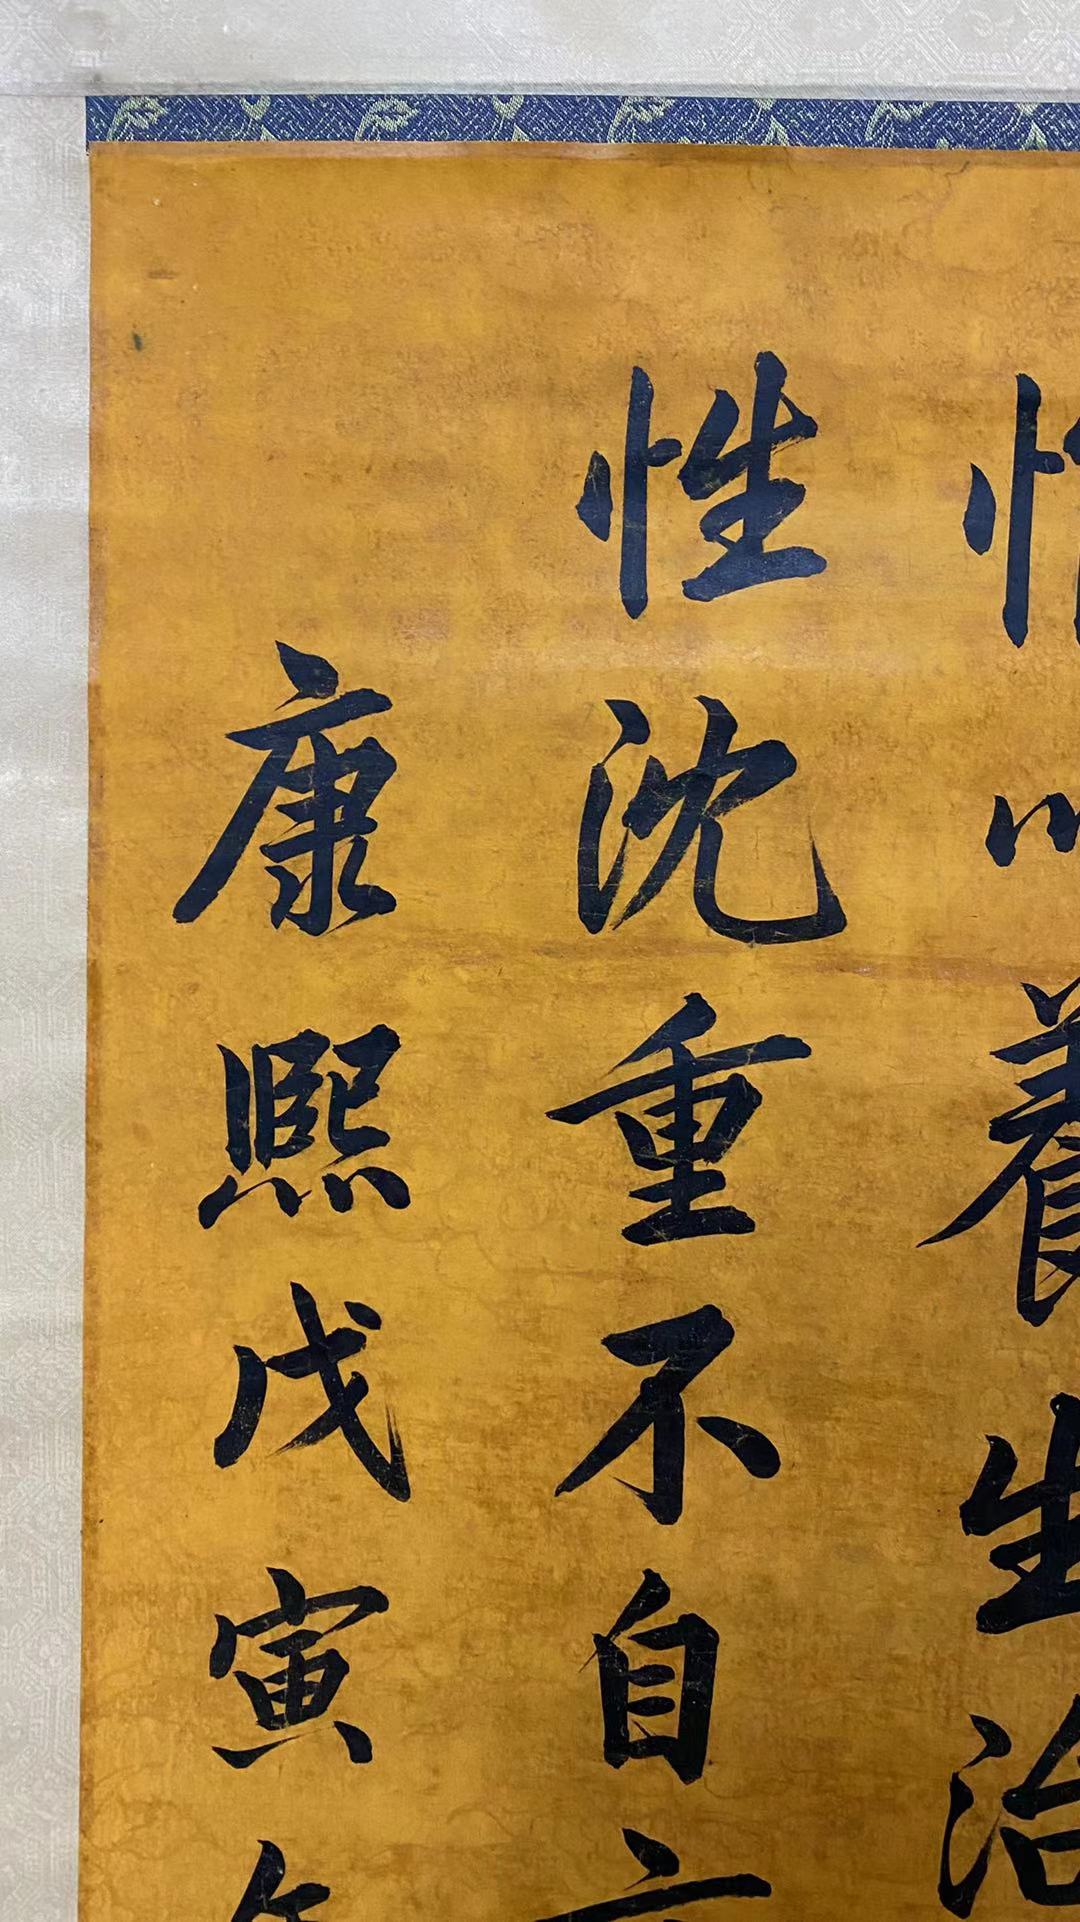 養生治
性沈重不自
康熙戊寅年